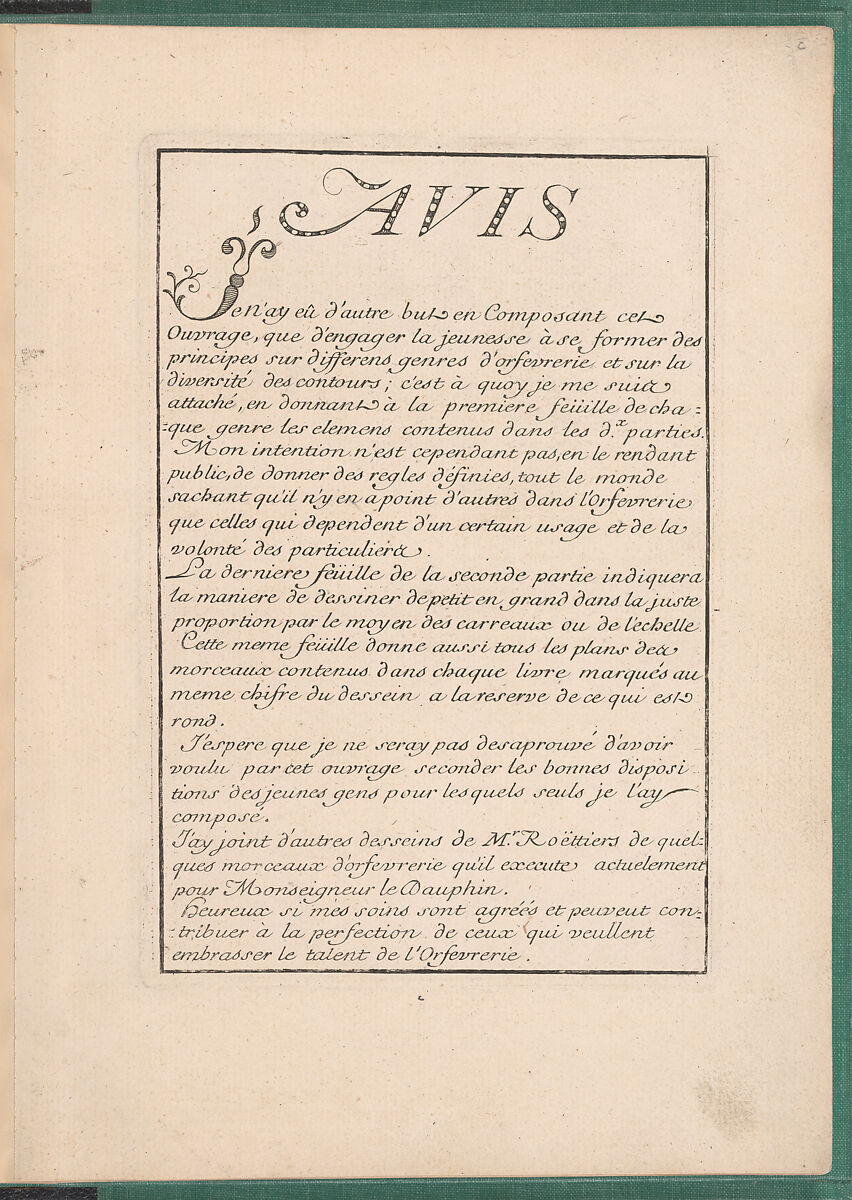 AVIS
Je n'ay eû d'autre but en Composant cet
Ouvrage, que d'engager la jeunesse à se former des
principes sur differens genres d'orfevrerie et sur la
diversité des contours; c'est à quoy je me suis
attaché, en donnant à la premiere feüille de cha=
=que genre les elemens contenus dans les d.x parties.
Mon intention n'est cependant pas, en le rendant
public, de donner des regles définies, tout le monde
sachant qu'il n'y en a point d'autres dans l'Orfevrerie
que celles qui dependent d'un certain usage et de la
volonté des particuliers.
La derniere feüille de la seconde partie indiquera
la maniere de dessiner de petit en grand dans la juste
proportion par le moyen des carreaux ou de l'echelle
Cette meme feüille donne aussi tous les plans des
morceaux contenus dans chaque livre marqués au
meme chifre du dessein a la reserve de ce qui est
rond.
J'espere que je ne seray pas desaprouvé d'avoir
voulu par cet ouvrage seconder les bonnes disposi
tions des jeunes gens pour lesquels seuls je l'ay
composé.
J'ay joint d'autres desseins de M.r Roëttiers de quel=
ques morceaux d'orfevrerie qu'il execute actuelement
pour Monseigneur le Dauphin.
Heureux si mes soins sont agréés et peuvent con=
=tribuer a la perfection de ceux qui veullent
embrasser le talent de l'Orfevrerie.
c